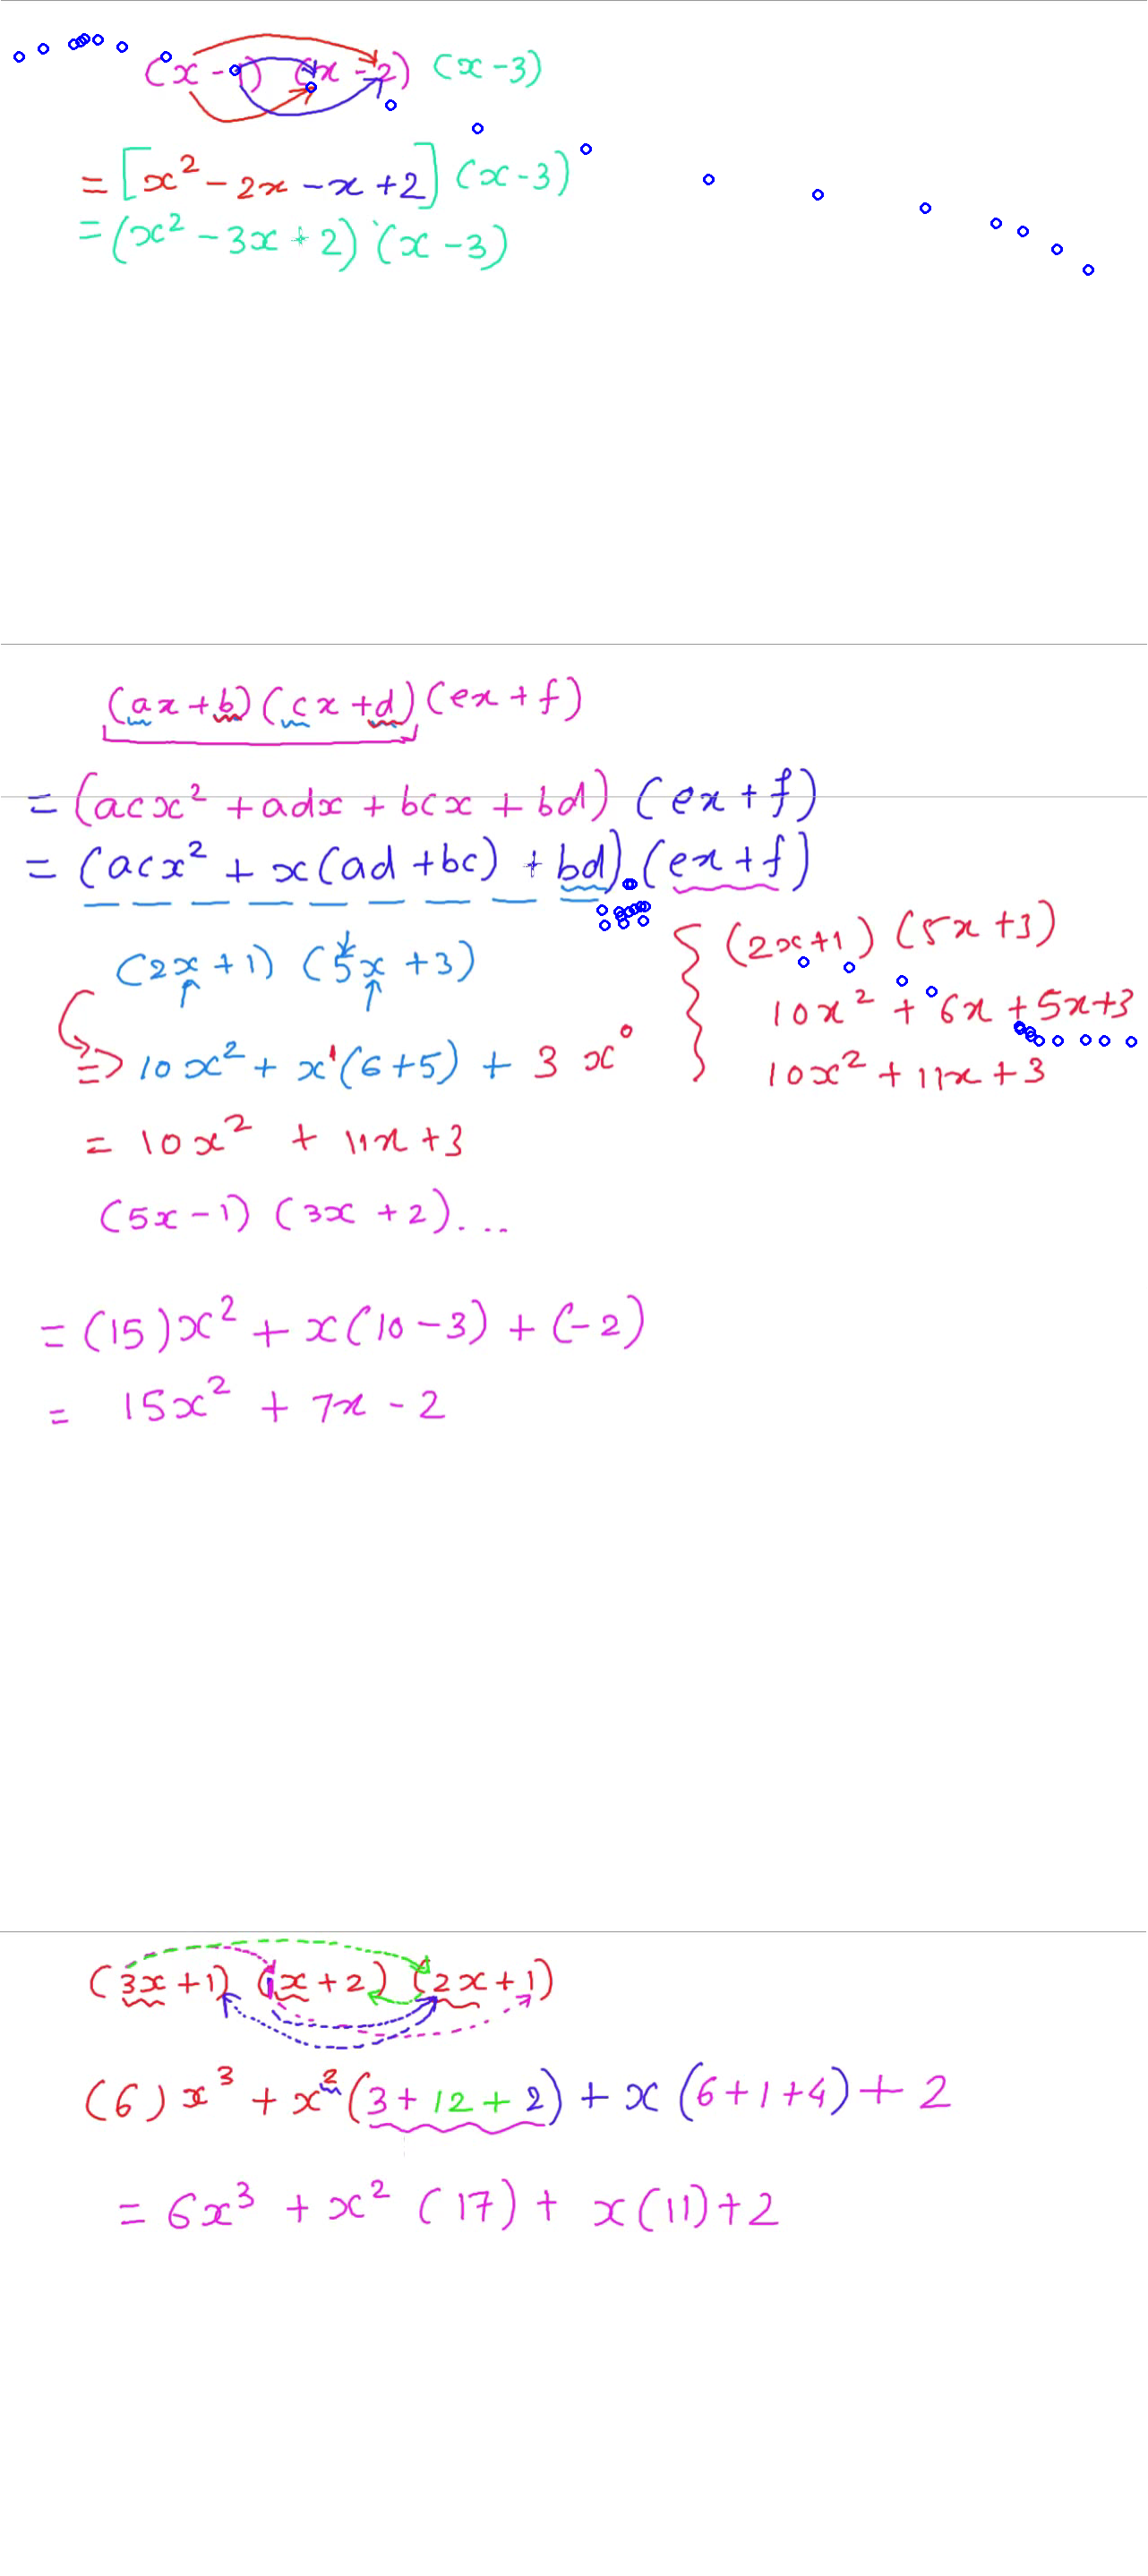 (x - 1) (x - 2) (x - 3)
= [x² - 2x - x + 2] (x - 3)
= (x² - 3x + 2) (x - 3)
(ax + b) (cx + d) (ex + f)
= (acx² + adx + bcx + bd) (ex + f)
= (acx² + x(ad + bc) + bd) . (ex + f)
(2x + 1) (5x + 3)
=> 10x² + x¹(6 + 5) + 3 x⁰
= 10x² + 11x + 3
{ (2x + 1) (5x + 3)
10x² + 6x + 5x + 3
10x² + 11x + 3
(5x - 1) (3x + 2) ...
= (15)x² + x(10 - 3) + (-2)
= 15x² + 7x - 2
(3x + 1) (x + 2) (2x + 1)
(6) x³ + x² (3 + 12 + 2) + x (6 + 1 + 4) + 2
= 6x³ + x² (17) + x(11) + 2